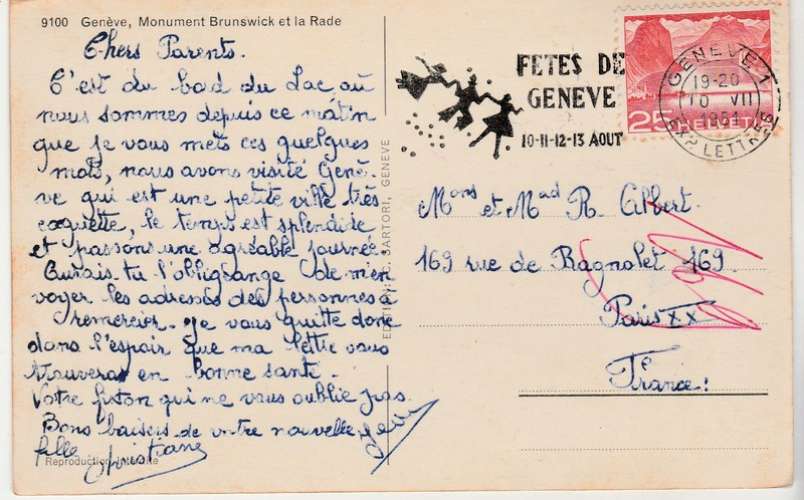 9100 Genève, Monument Brunswick et la Rade
Chers Parents.
C'est du bord du Lac où
nous sommes depuis ce matin
que je vous mets ces quelques
mots, nous avons visité Genè-
ve qui est une petite ville très
coquette, le temps est splendide
et passons une agréable journée
Aurais-tu l'obligeange de m'en
voyer les adresses des personnes à
remercier. Je vous quitte donc
dans l'espoir que ma lettre vous
trouveras en bonne santé.
Votre fiston qui ne vous oublie pas.
Bons baisers de votre nouvelle
fille
Reproduction interdite
SARTORI, GENEVE
FETES DE
GENEVE
10-11-12-13 AOUT
GENEVE 1
19-20
VII
LETTRES
25 HELVETIA
Mons et Mad R. Albert.
169 rue de Bagnolet 169.
Paris XX
France!